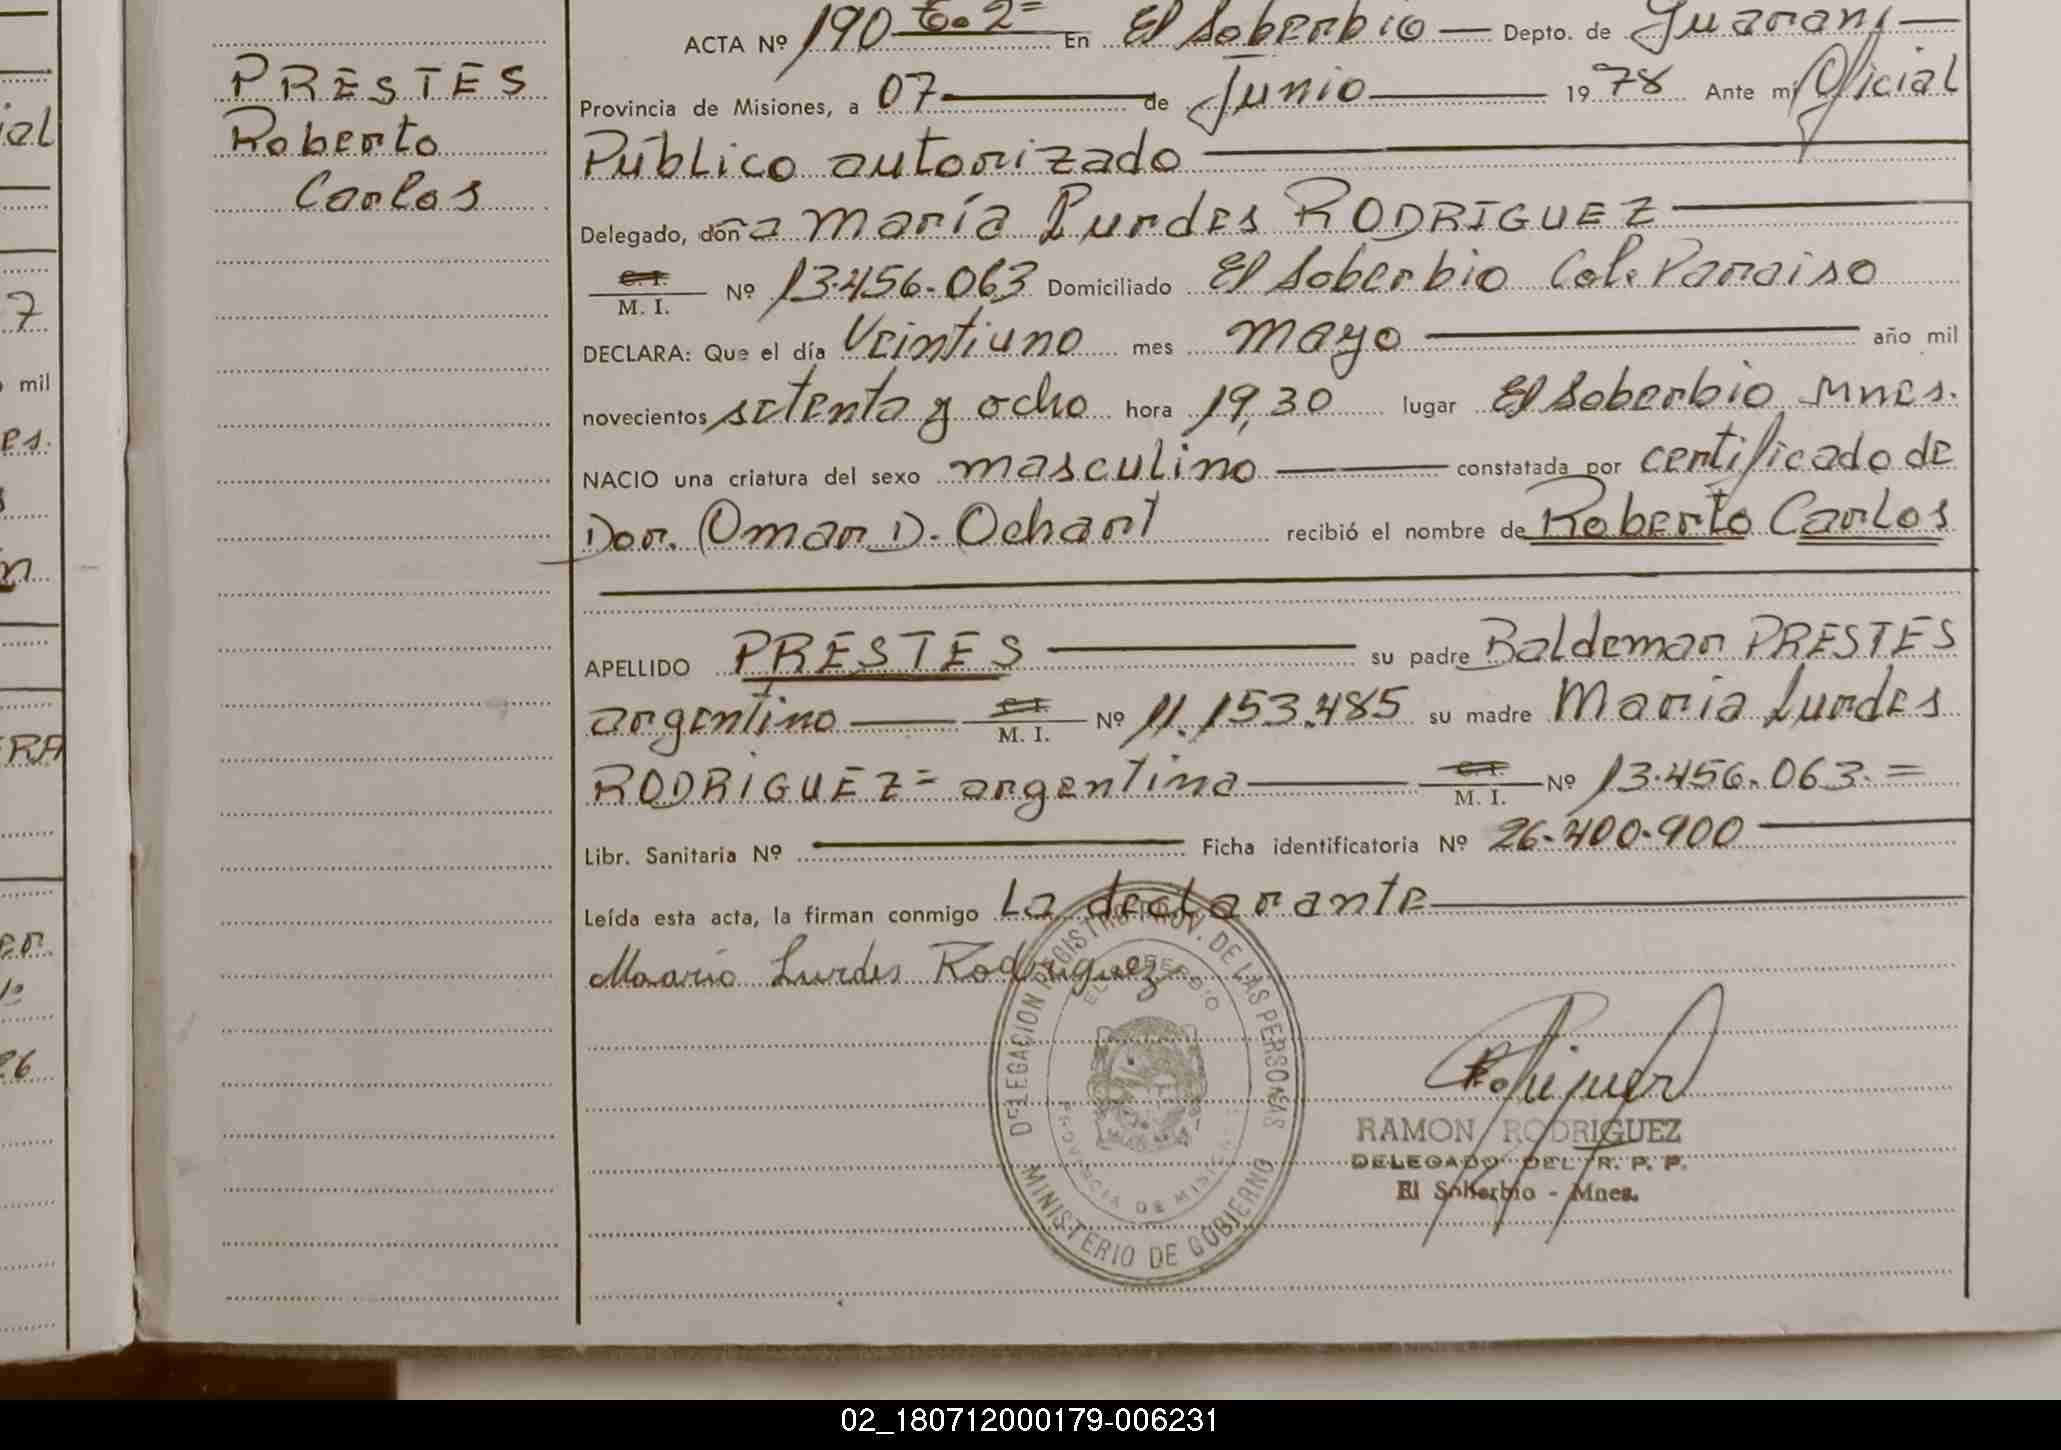 PRESTES
Roberto
Carlos
ACTA Nº 190 To. 2= En El Soberbio Depto. de Guarani
Provincia de Misiones, a 07 de Junio 1978 Ante mi Oficial
Público autorizado
Delegado, doña María Lurdes RODRIGUEZ
C. I.
M. I. Nº 13.456.063 Domiciliado El Soberbio Col. Paraiso
DECLARA: Que el día Veintiuno mes mayo año mil
novecientos setenta y ocho hora 19,30 lugar El Soberbio Mnes.
NACIO una criatura del sexo masculino constatada por certificado de
Dor. Omar D. Ochart recibió el nombre de Roberto Carlos
APELLIDO PRESTES su padre Baldemar PRESTES
argentino C. I. M. I. Nº 11.153.485 su madre Maria Lurdes
RODRIGUEZ= argentina C. I. M. I. Nº 13.456.063.=
Libr. Sanitaria Nº Ficha identificatoria Nº 26.400.900
Leída esta acta, la firman conmigo La declarante
Maario Lurdes Rodriguez
DELEGACION REGISTRO PROV. DE LAS PERSONAS
EL SOBERBIO
PROVINCIA DE MISIONES
MINISTERIO DE GOBIERNO
RAMON RODRIGUEZ
DELEGADO DEL R. P. P.
El Soberbio - Mnes.
ial
7
mil
es.
n
ERA
er.
26
02_180712000179-006231